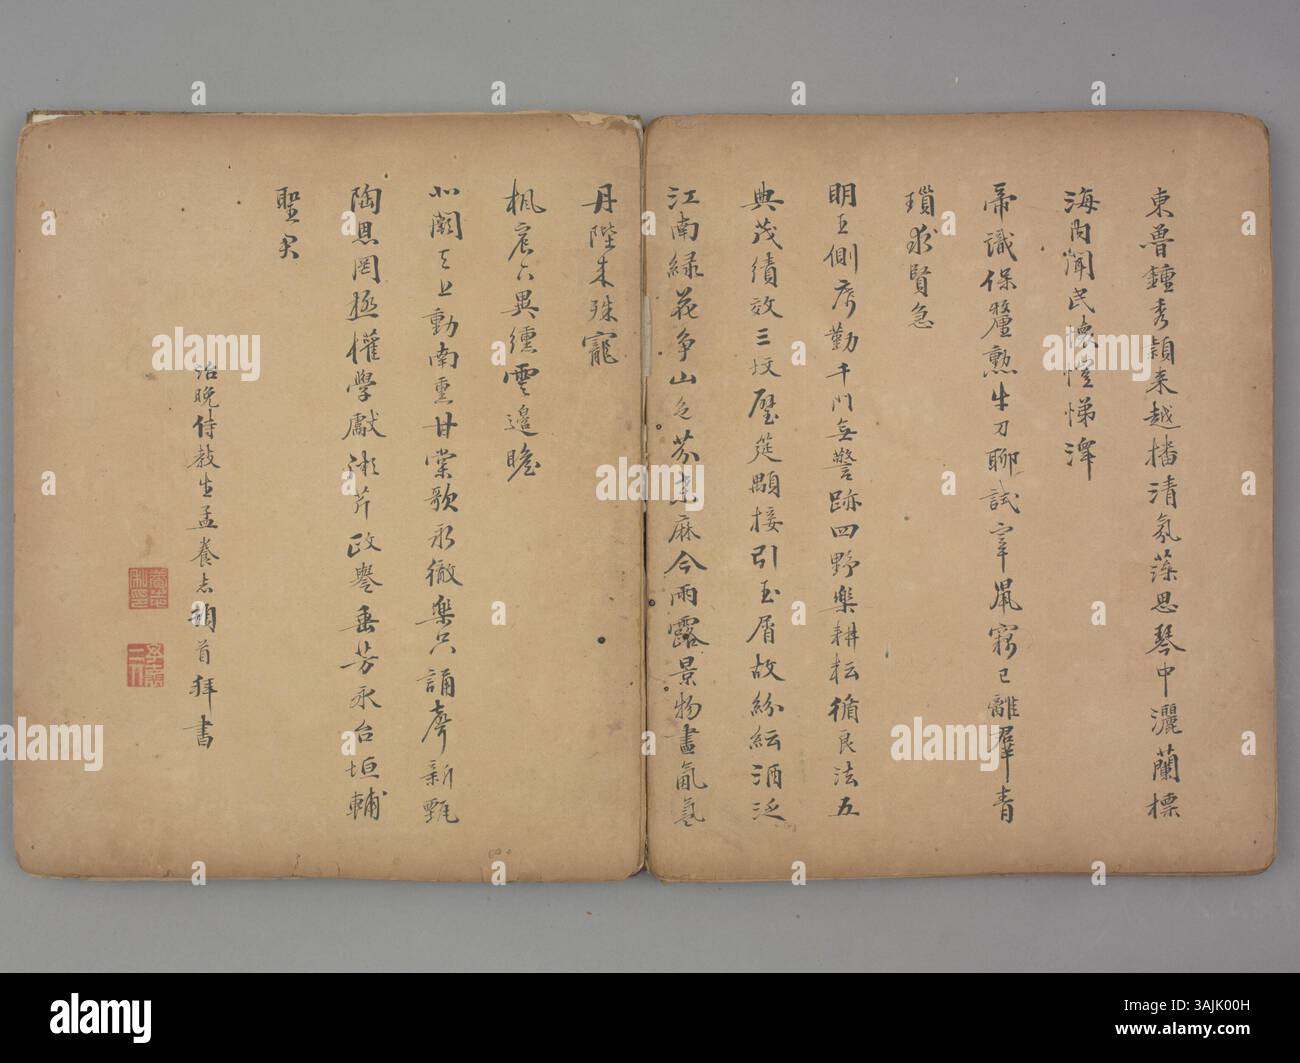 東魯鍾秀頴來越播清氛藻思琴中灑蘭標
海內聞民懷愷悌澤
帝識保釐勲牛刀聊試宰鳳窺已離群青
瑣求賢急
明王側席勤千門無警跡四野樂耕耘循良法五
典茂績效三坟璧筵顒接引玉屑故紛紜酒泛
江南綠花爭山色芬桑麻今雨露景物盡氤氳
丹陛來殊寵
楓宸異纁雲邊瞻
北闕天上動南熏甘棠歌永徹樂只誦聲新甄
陶恩罔極權學獻漸芹政譽垂芳永台垣輔
聖君
治晚侍教生孟養志頓首拜書
alamy
Image ID: 3AJK00H
www.alamy.com